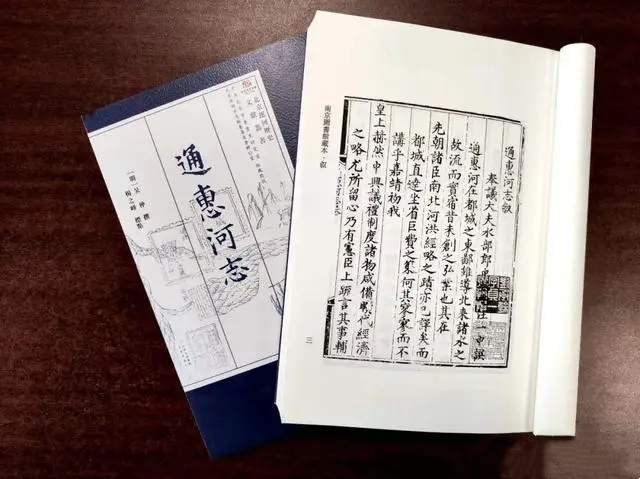 通惠河志
〔明〕吳仲 撰
楊之峰 標點
南京圖書館藏本·叙
通惠河志叙
奉議大夫水部郎中 一中譔
通惠河在都城之東鄙雖導北來諸水之
故流而實宿昔未創之弘業也其在
先朝諸臣南北河洪經略之蹟亦已詳矣而
都城直達坐省巨費之策何其寥寥而不
講乎嘉靖初我
皇上赫然中興議禮制度諸物咸備 代經濟
之略尤所留心乃有憲臣上疏言其事輔
三